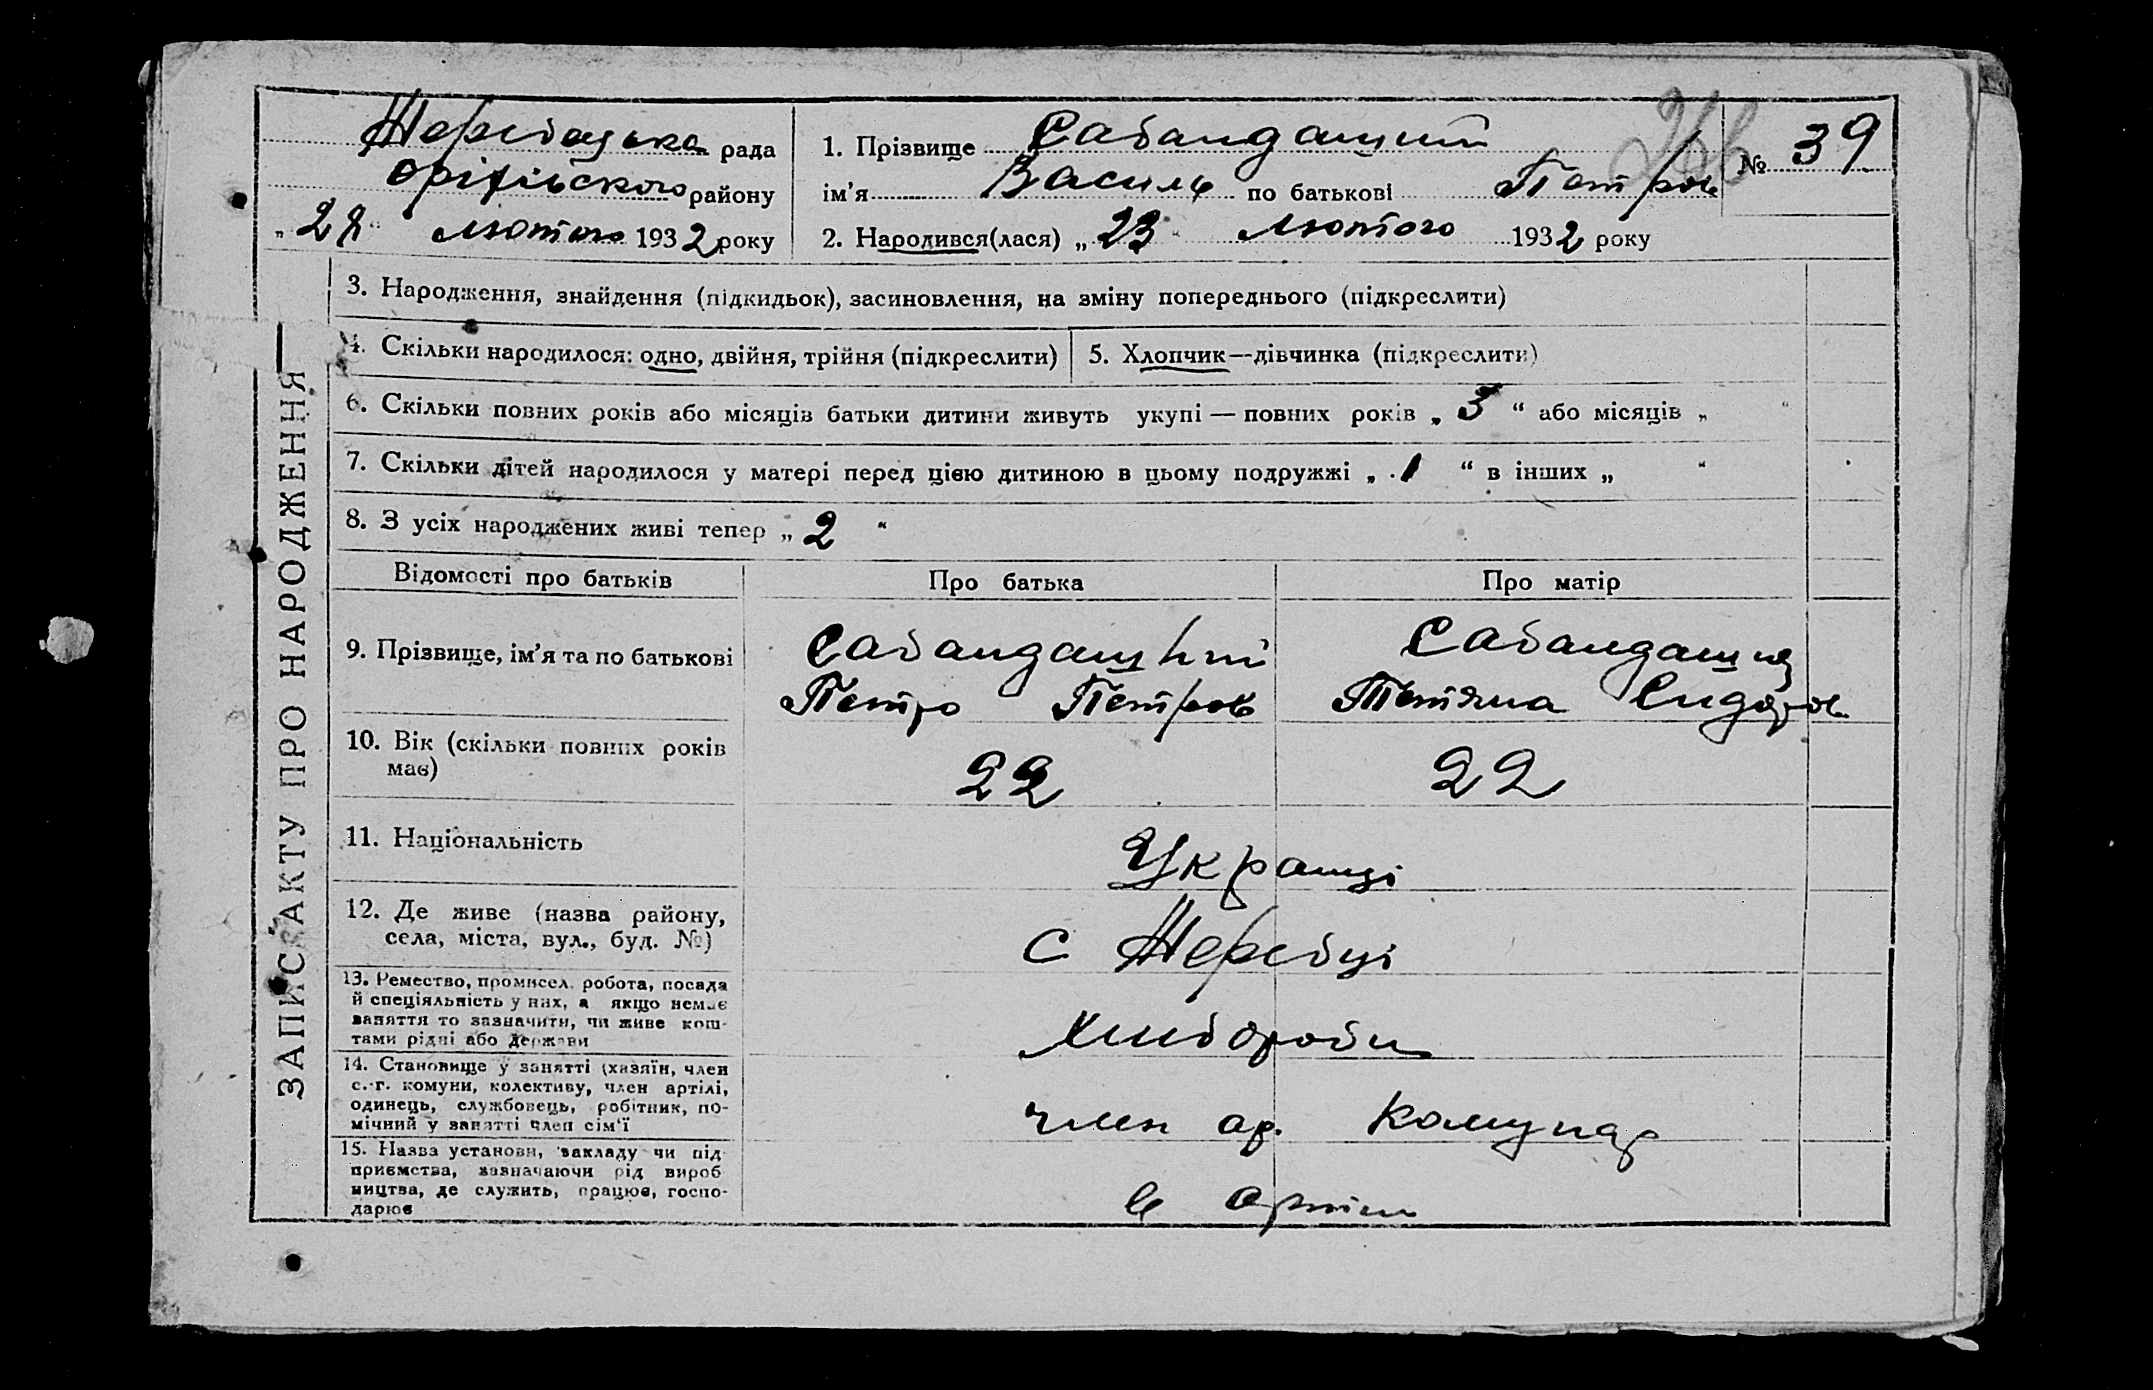 Жеребецька рада
Оріхівського району
„ 28 “ Лютого 1932 року
1. Прізвище Сабандаший № 39
ім’я Василь по батькові Петров
2. Народився(лася) „ 23 “ Лютого 1932 року
ЗАПИС АКТУ ПРО НАРОДЖЕННЯ
3. Народження, знайдення (підкидьок), засиновлення, на зміну попереднього (підкреслити)
4. Скільки народилося: одно, двійня, трійня (підкреслити) 5. Хлопчик—дівчинка (підкреслити)
6. Скільки повних років або місяців батьки дитини живуть укупі — повних років „ 3 “ або місяців „ “
7. Скільки дітей народилося у матері перед цією дитиною в цьому подружжі „ 1 “ в інших „ “
8. З усіх народжених живі тепер „ 2 “
Відомості про батьків Про батька Про матір
9. Прізвище, ім’я та по батькові
Петро Петров Тетяна Сидоров
10. Вік (скільки повних років
має) 22 22
11. Національність Українці
12. Де живе (назва району,
села, міста, вул., буд. №) с Жеребці
13. Ремество, промисел, робота, посада
й спеціяльність у них, а якщо немає
заняття то зазначити, чи живе кош-
тами рідні або держави
Хлибороби
14. Становище у занятті (хазяїн, член
с.-г. комуни, колективу, член артілі,
одинець, службовець, робітник, по-
мічний у занятті член сім’ї
член ар. Комунар
15. Назва установи, закладу чи під
приємства, зазначаючи рід вироб
ництва, де служить, працює, госпо-
дарює
в артіли